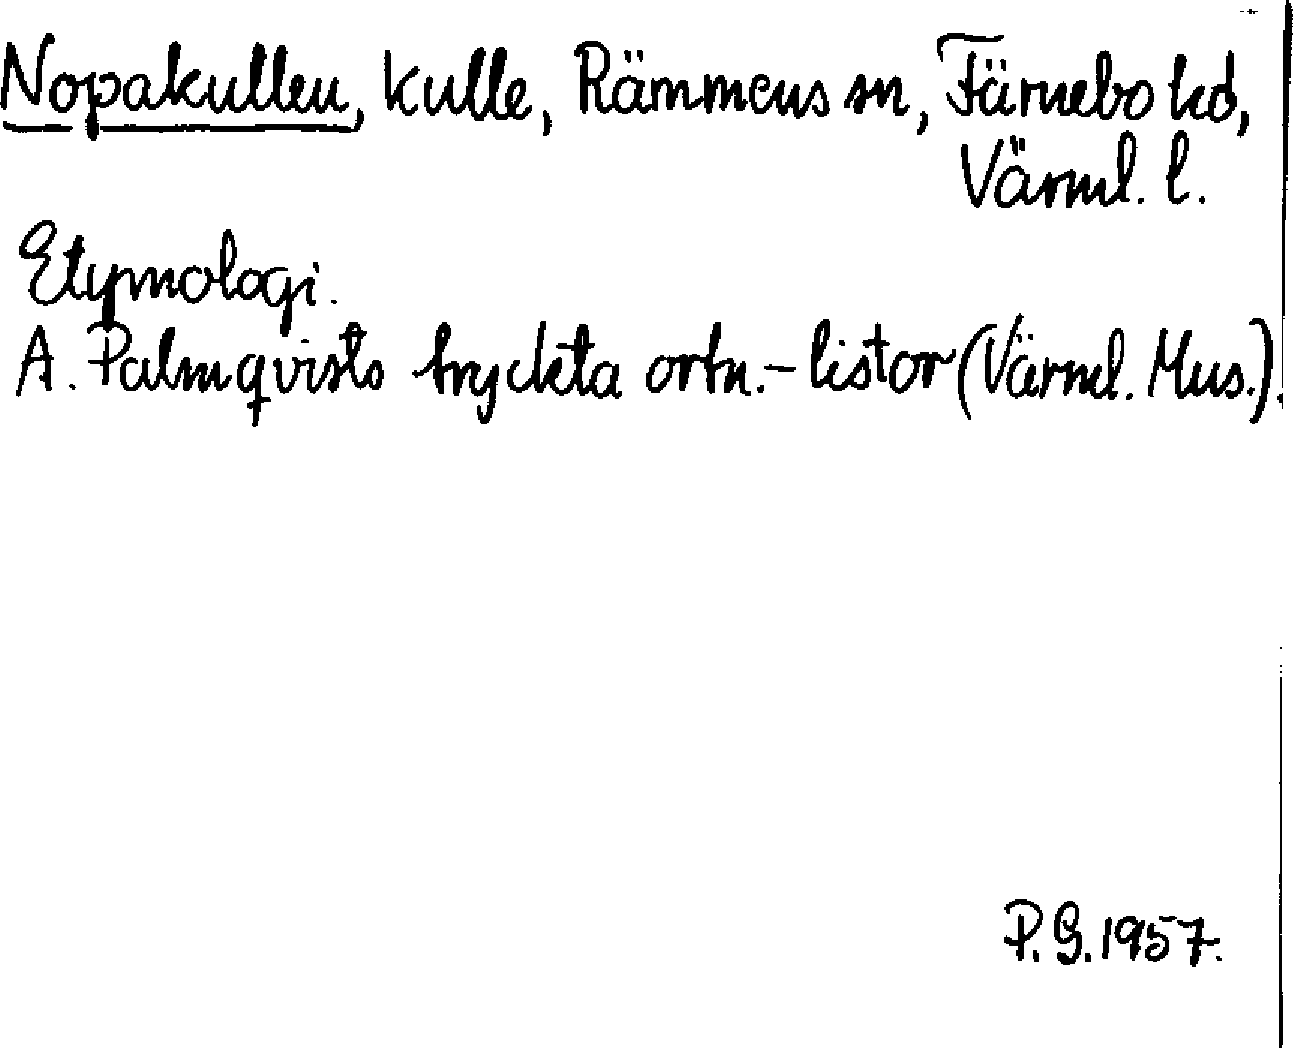 Nopakullen, kulle, Rämmens sn, Färnebo hd,
Värml. l.
Etymologi.
A. Palmqvists tryckta ortn.-listor (Värml. Mus.).
P.G. 1957.